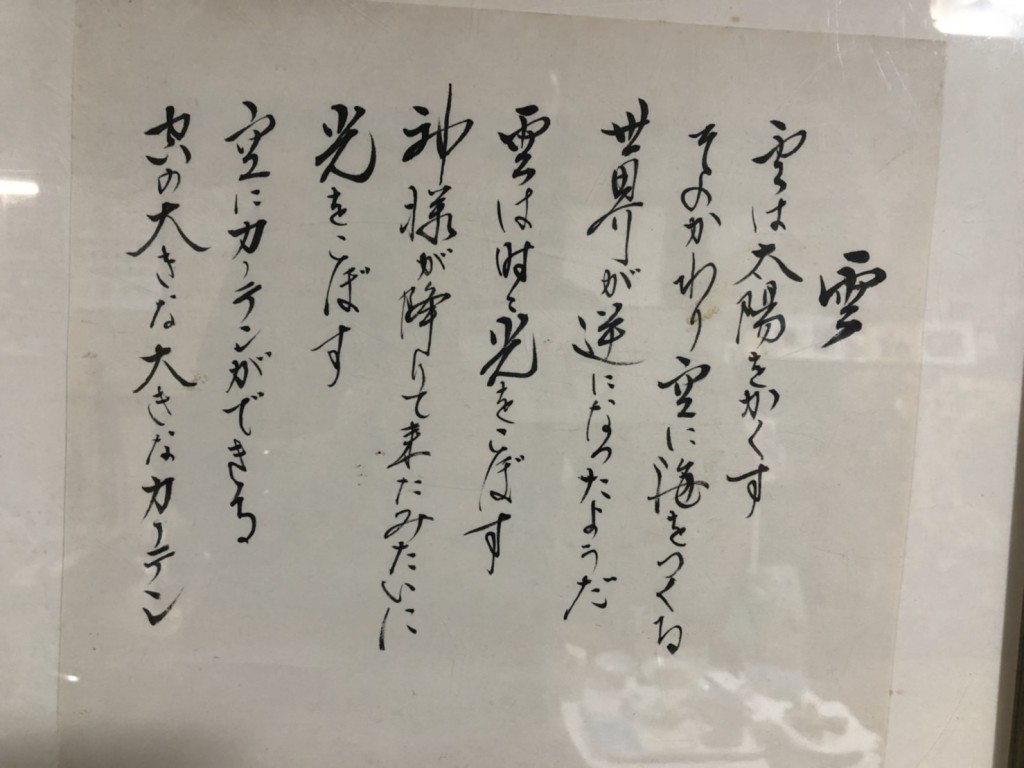 雲
雲は太陽をかくす
そのかわり空に海をつくる
世界が逆になったようだ
雲は時々光をこぼす
神様が降りて来たみたいに
光をこぼす
空にカーテンができる
の大きな大きなカーテン